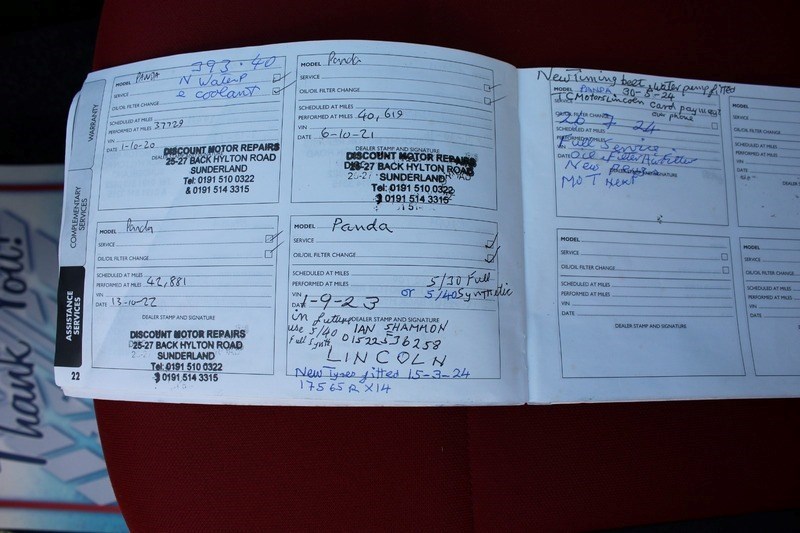 WARRANTY
COMPLEMENTARY
SERVICES
ASSISTANCE
SERVICES
22
Thank You!
393.40
MODEL PANDA
N Water P
SERVICE
& coolant
OIL/OIL FILTER CHANGE
SCHEDULED AT MILES
PERFORMED AT MILES 37729
VIN
DATE 1-10-20
DEALER
DISCOUNT MOTOR REPAIRS
25-27 BACK HYLTON ROAD
SUNDERLAND
Tel: 0191 510 0322
& 0191 514 3315
MODEL Panda
SERVICE
OIL/OIL FILTER CHANGE
SCHEDULED AT MILES
PERFORMED AT MILES 40,619
VIN
DATE 6-10-21
DEALER STAMP AND SIGNATURE
DISCOUNT MOTOR REPAIRS
25-27 BACK HYLTON ROAD
SUNDERLAND
Tel: 0191 510 0322
0191 514 3315
MODEL Panda
SERVICE
OIL/OIL FILTER CHANGE
SCHEDULED AT MILES
PERFORMED AT MILES 42,881
VIN
DATE 13-10-22
DEALER STAMP AND SIGNATURE
DISCOUNT MOTOR REPAIRS
25-27 BACK HYLTON ROAD
SUNDERLAND
Tel: 0191 510 0322
0191 514 3315
MODEL Panda
SERVICE
OIL/OIL FILTER CHANGE
SCHEDULED AT MILES
PERFORMED AT MILES 5/30 Full
VIN or 5/40 Synthetic
DATE 1-9-23
in future DEALER STAMP AND SIGNATURE
use 5/40 IAN SHAMMON
Full Synth 01522536258
LINCOLN
New Tyres fitted 15-3-24
17565R X14
New Timing belt & water pump fitted
MODEL PANDA 30-5-24
TC Motors Lincoln card payment
on phone
OIL/OIL FILTER CHANGE
26 7 24
SCHEDULED AT MILES
Full Service
Oil & Filter Air Filter
New
MOT Next
MODEL
SERVICE
OIL/OIL FILTER CHANGE
SCHEDULED AT MILES
PERFORMED AT MILES
VIN
DATE
DEALER STAMP AND SIGNATURE
MODEL
SERVICE
OIL/OIL FILTER CHANGE
SCHEDULED AT MILES
PERFORMED AT MILES
VIN
DATE
MODEL
SERVICE
OIL/OIL FILTER CHANGE
SCHEDULED AT MILES
PERFORMED AT MILES
VIN
DATE